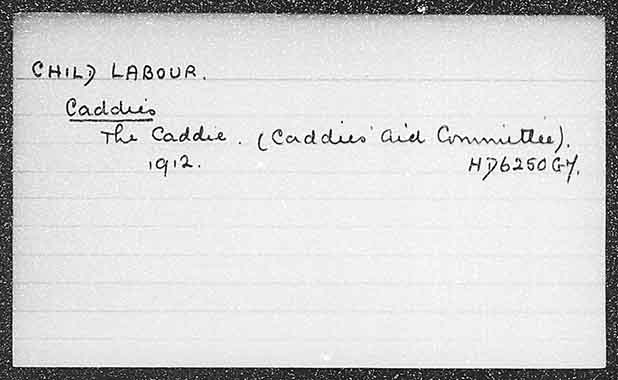 CHILD LABOUR.
Caddies
The Caddie. (Caddies' Aid Committee).
1912. HD6250G7.